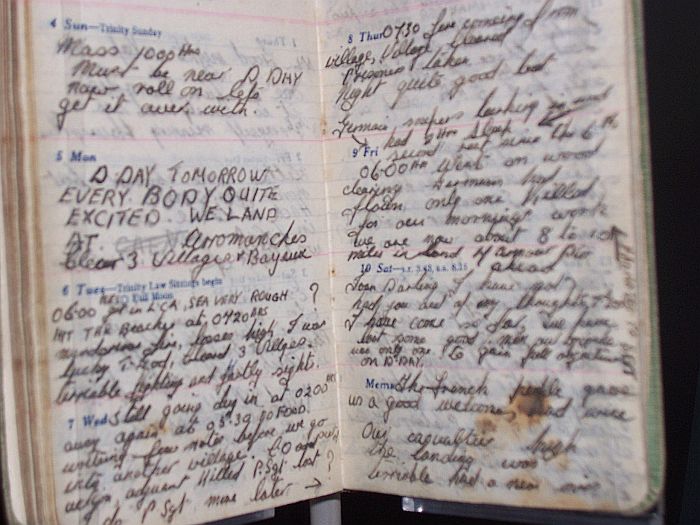 4 Sun—Trinity Sunday
Mass 1000 Hrs
Must be near D DAY
now roll on lets
get it over with.
5 Mon
D.DAY TOMORROW.
EVERY BODY QUITE
EXCITED. WE LAND
AT Arromanches
Clear 3 Villages Bayeux
6 Tues—Trinity Law Sittings begin
Full Moon
06.00 get in LCA, SEA VERY ROUGH
HIT THE Beaches at 0720 HRS
murderous fire, losses high I was
lucky T God, cleared 3 Villages.
terriable fighting and gastly sights.
7 Wed Still going dug in at 0200 HRS
away again at 05.30 NO FOOD.
writing few notes before we go
into another village. CO out
adjutant Killed P.Sgt lost
I do P Sgt more later →
8 Thur 07.30 fire coming from
village, Village cleared
Prisoners taken
night quite good but
German snipers lurking in wood
had 2 Hrs sleep
second rest since the 6th
9 Fri 06.00 Hrs Went on wood
clearing Germans had
flown only one killed
for our mornings work
we are now about 8 to 10
miles in land
10 Sat—S.R. 3.45, S.S. 8.15
Joan Darling I have not
had you out of my thoughts
I have come so far, we have
lost some good men our brigade
was only one to gain full objectives
on D-DAY.
Memo The French people gave
us a good welcome, had wine
Our casualties high
the landing was
terriable had a near miss